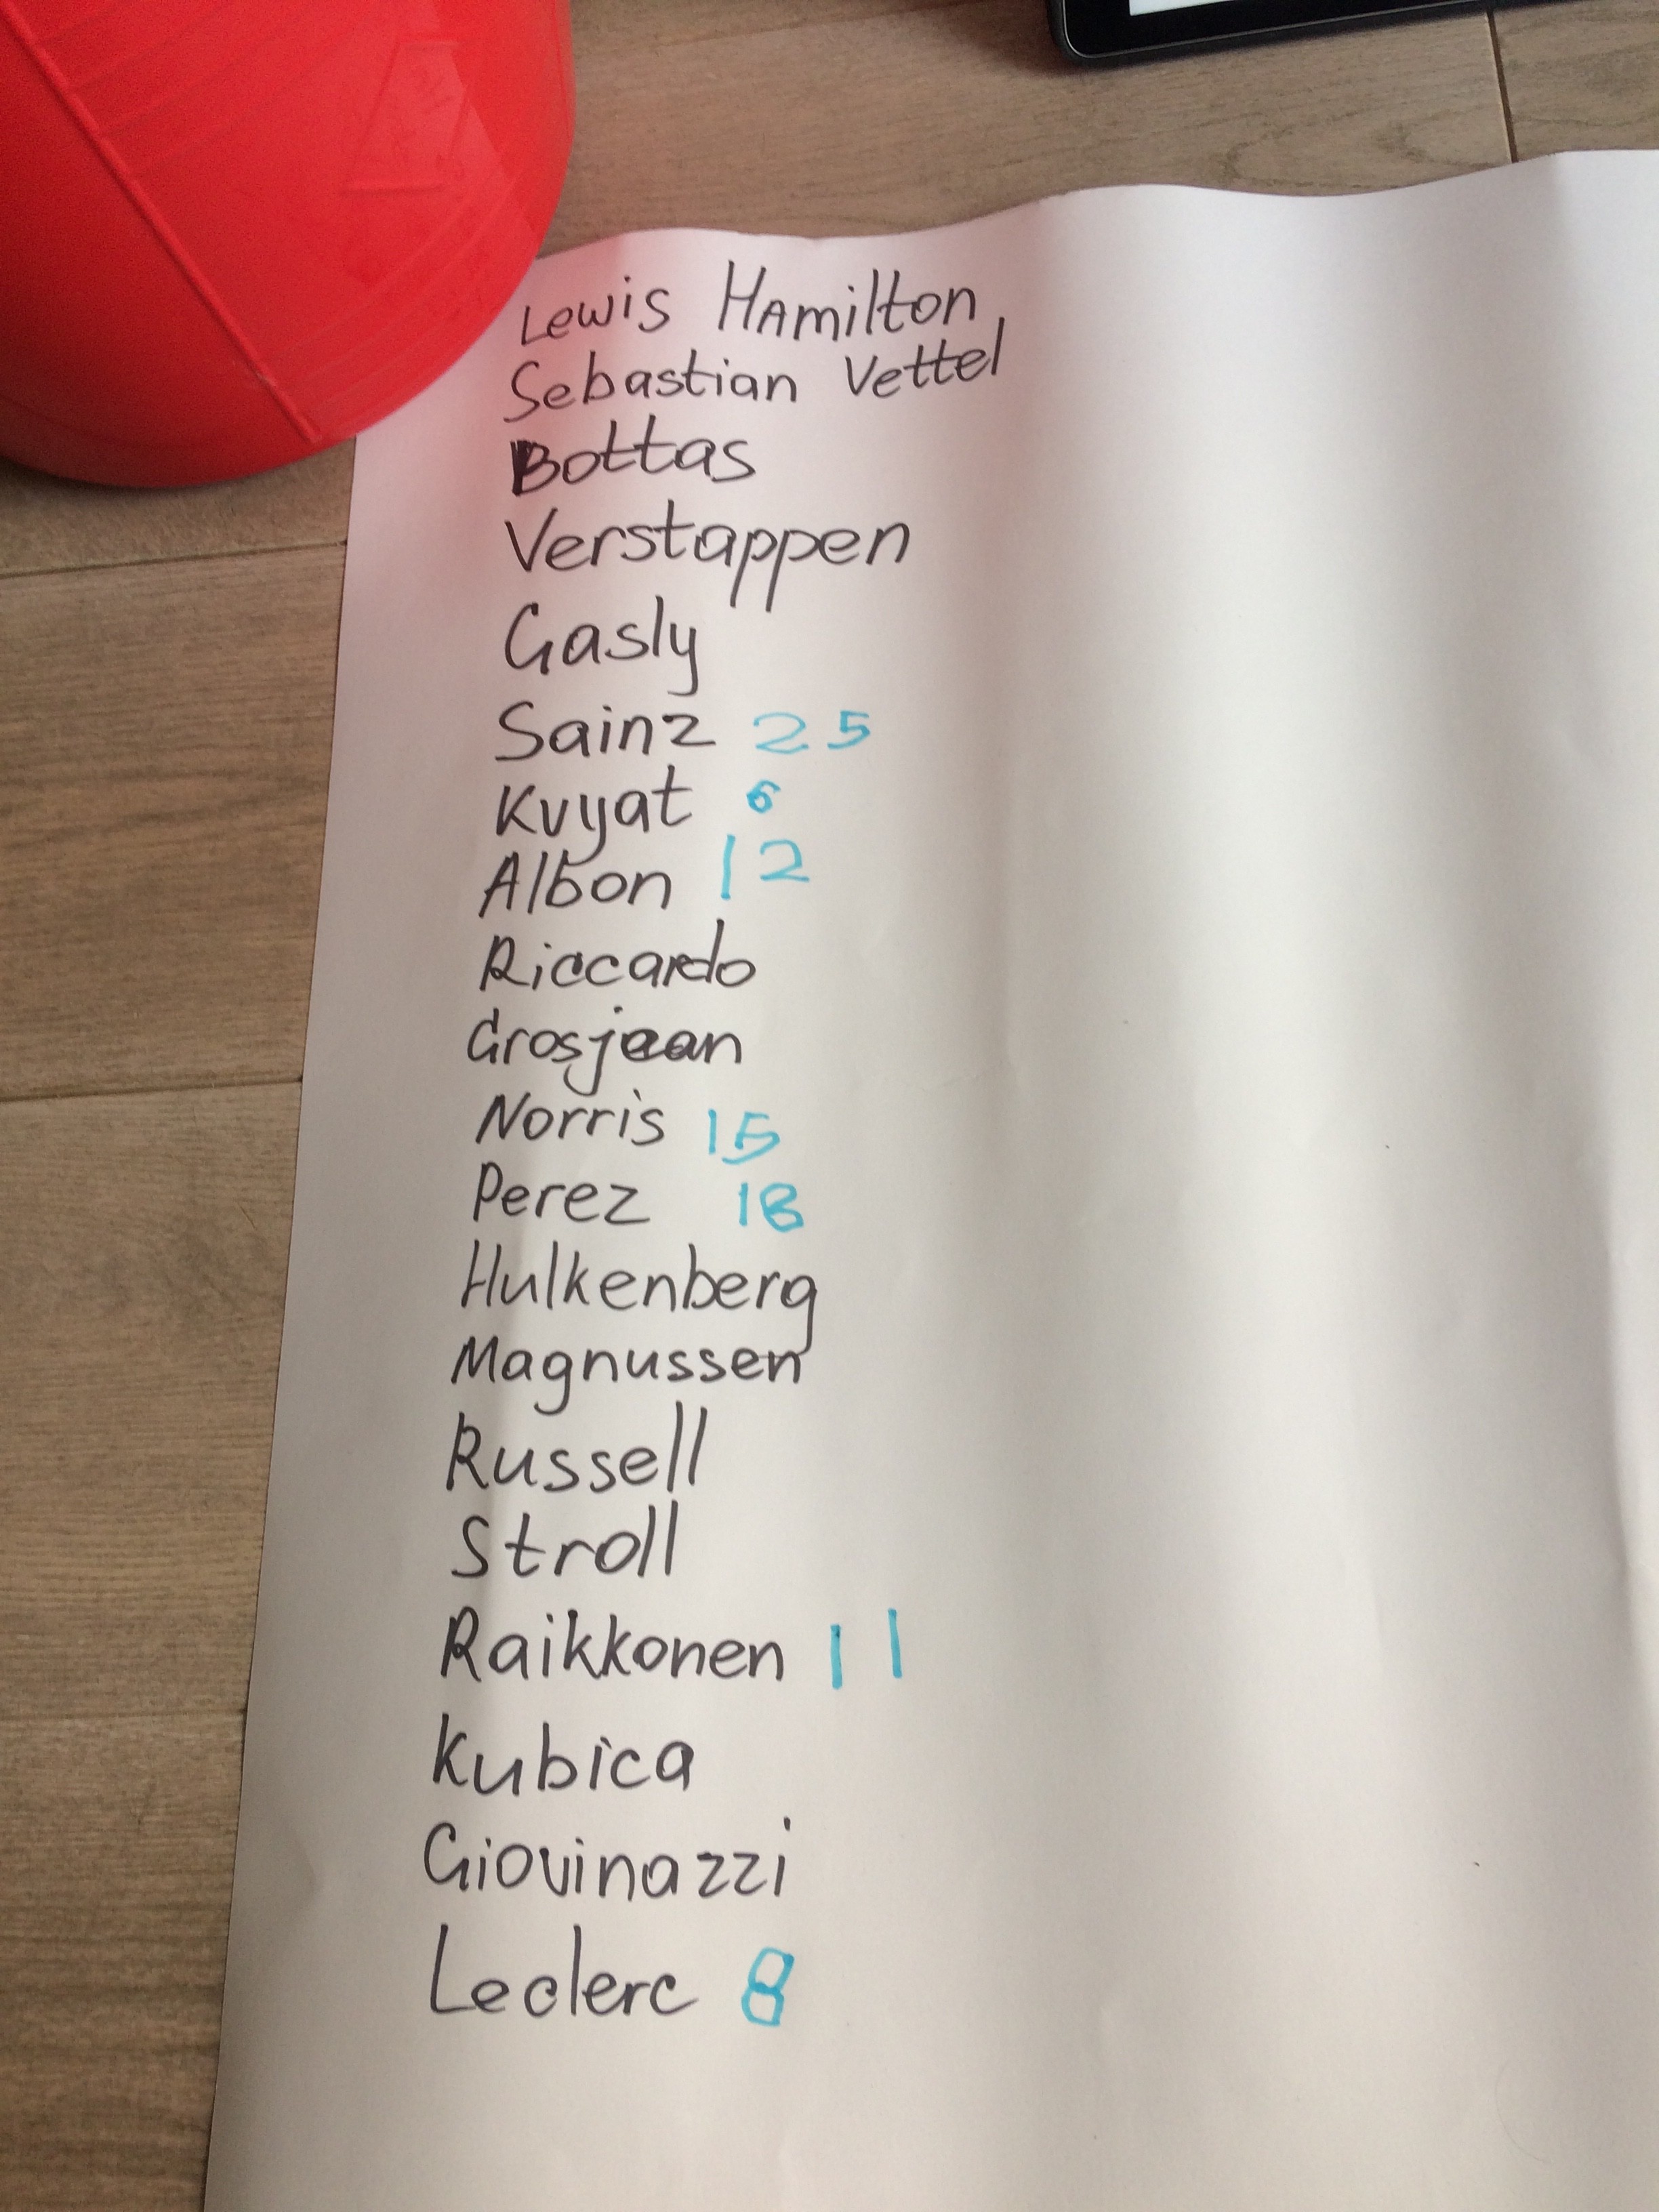 Lewis Hamilton
Sebastian Vettel
Bottas
Verstappen
Gasly
Sainz 25
Kvyat 6
Albon 12
Riccardo
Grosjean
Norris 15
Perez 18
Hulkenberg
Magnussen
Russell
Stroll
Raikkonen 11
Kubica
Giovinazzi
Leclerc 8